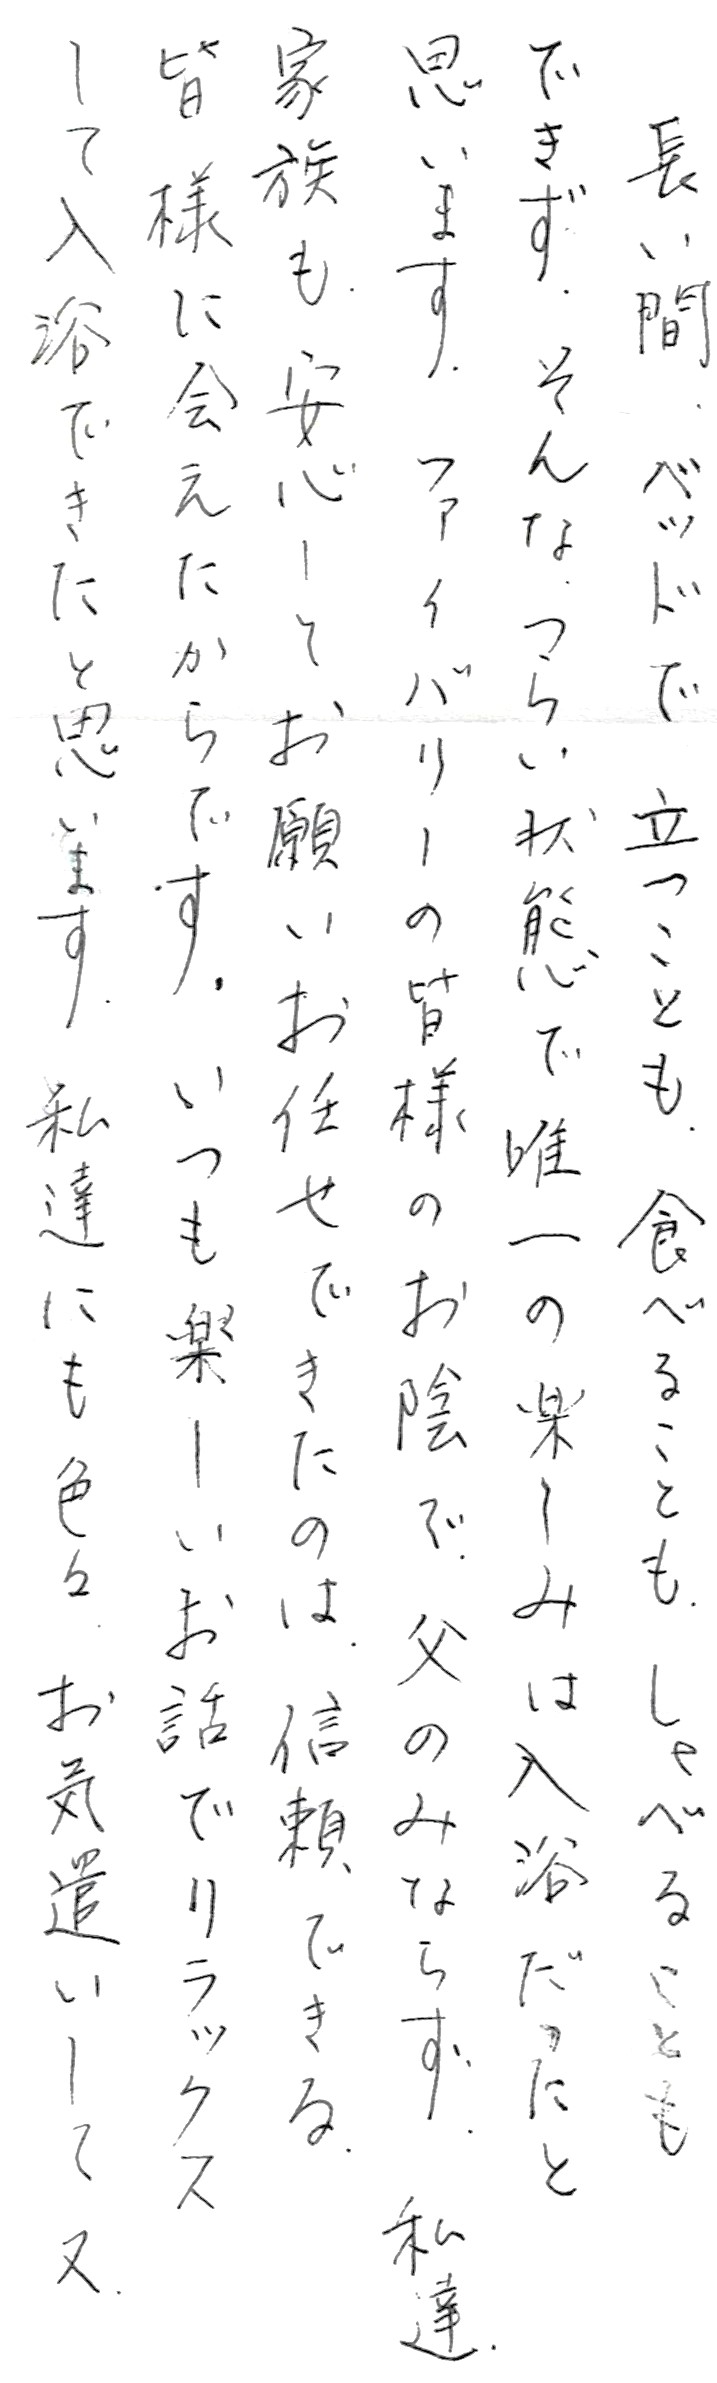 長い間、ベッドで立つことも、食べることも、しゃべることも
できず、そんな、つらい状態で唯一の楽しみは入浴だったと
思います。ファイバリーの皆様のお陰で、父のみならず、私達、
家族も、安心してお願いお任せできたのは、信頼できる、
皆様に会えたからです。いつも楽しいお話でリラックス
して入浴できたと思います。私達にも色々、お気遣いして又、